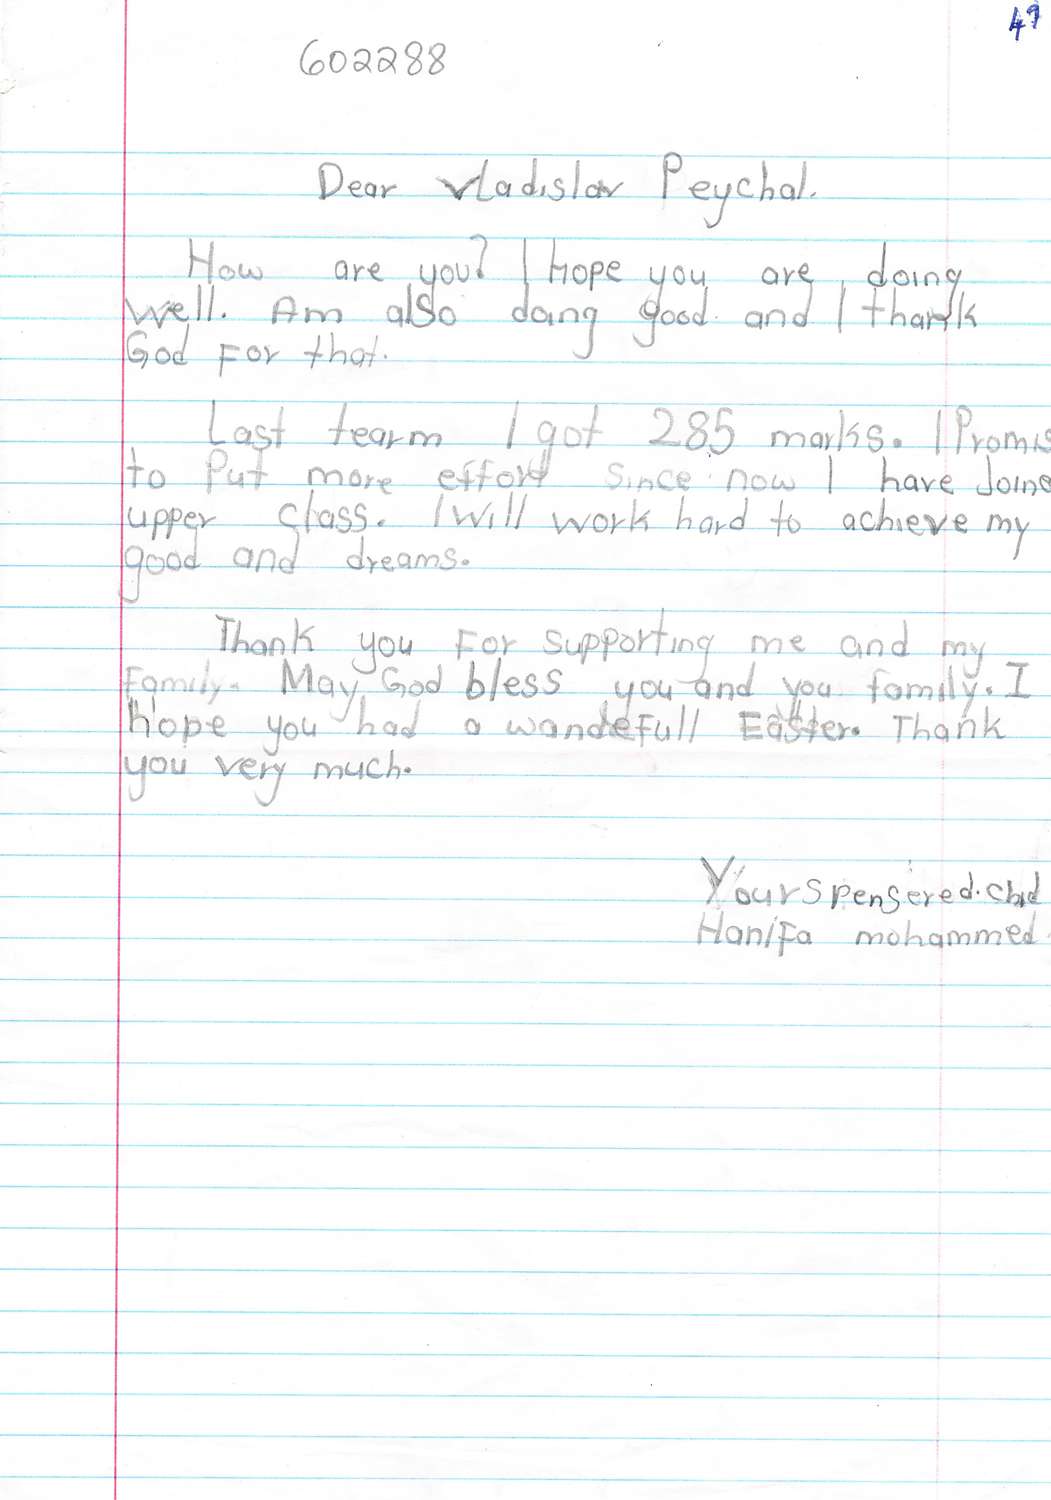 49
602288
Dear Vladislav Peychal.
How are you? I hope you are doing
well. Am also doing good and I thank
God For that.
Last tearm I got 285 marks. I Promis
to Put more effort since now I have Joine
upper class. I will work hard to achieve my
good and dreams.
Thank you For supporting me and my
Family. May God bless you and you family. I
hope you had a wandefull Easter. Thank
you very much.
Your spensered. child
Hanifa mohammed.